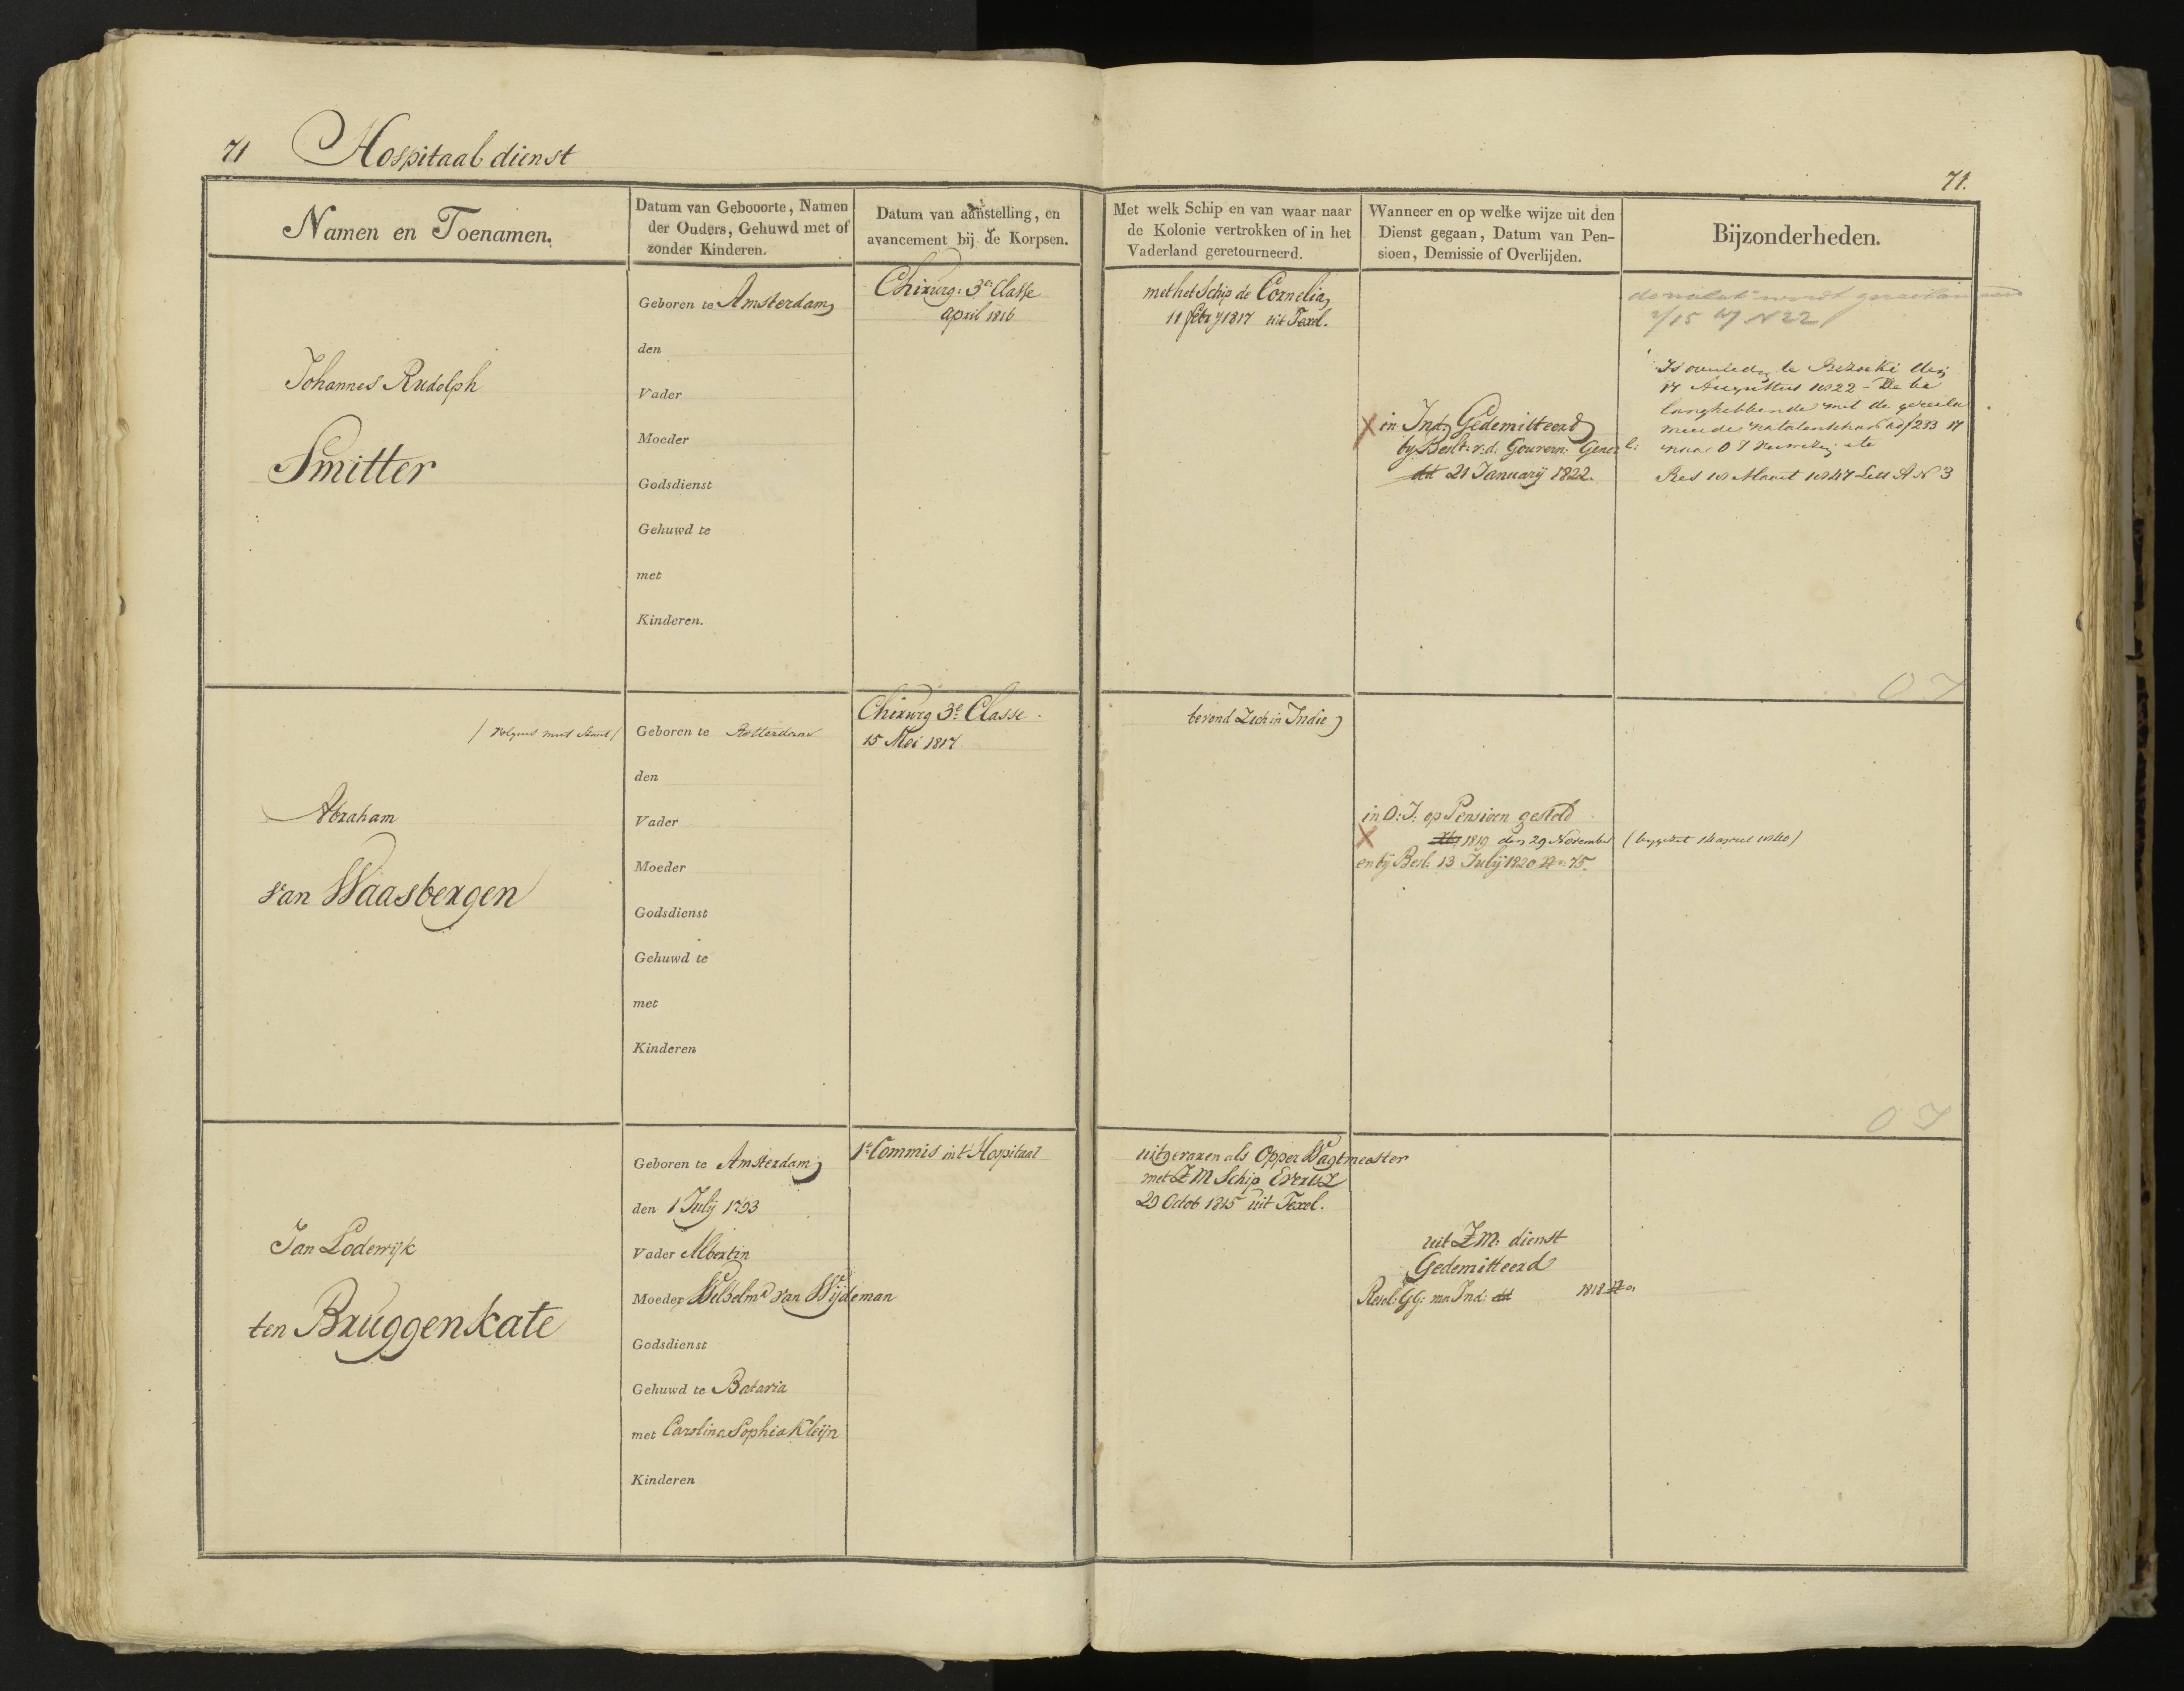 71 Hospitaal dienst
71.
Namen en Toenamen.
Datum van Gebooorte, Namen
der Ouders, Gehuwd met of
zonder Kinderen.
Datum van aanstelling, en
avancement bij de Korpsen.
Met welk Schip en van waar naar
de Kolonie vertrokken of in het
Vaderland geretourneerd.
Wanneer en op welke wijze uit den
Dienst gegaan, Datum van Pen-
sioen, Demissie of Overlijden.
Bijzonderheden.
Johannes Rudolph
Smitter
Geboren te Amsterdam
den
Vader
Moeder
Godsdienst
Gehuwd te
met
Kinderen.
Chirurg: 3e: Classe
april 1816
met het Schip de Cornelia
11 feb:y 1817 uit Texel.
in Ind: Gedemitteerd
by Beslt: v: d: Gouvern: Genera l:
dd 21 Januarij 1822.
wordt
2/15 N 22
Is overleden te Bezoeki den
17 Augustus 1822 - De be
langhebbende met de
nalatenschap ad f 233 17
naar O I
Res 10 Maart 1847 Lett A N 3
O I
Abraham
van Waasbergen
Geboren te Rotterdam
den
Vader
Moeder
Godsdienst
Gehuwd te
met
Kinderen
Chirurg 3e: Classe.
15 Mei 1817
bevond Zich in Indie
in O: I: op Pensioen gesteld
1819 den 29 November
en bij Besl: 13 Julij 1820 No: 75.
O I
Jan Lodewijk
ten Bruggenkate
Geboren te Amsterdam
den 1 Julij 1793
Vader Albertin
Moeder Wilhelma van Wijdeman
Godsdienst
Gehuwd te Batavia
met Carolina Sophia Kleijn
Kinderen
1e Commis in t Hospitaal
uitgevaren als Opper Wagtmeester
met Z M Schip Evertz
29 Octob 1815 uit Texel.
uit Z M: dienst
Gedemitteerd
Resol: GG: van Ind: dd 1818 No: